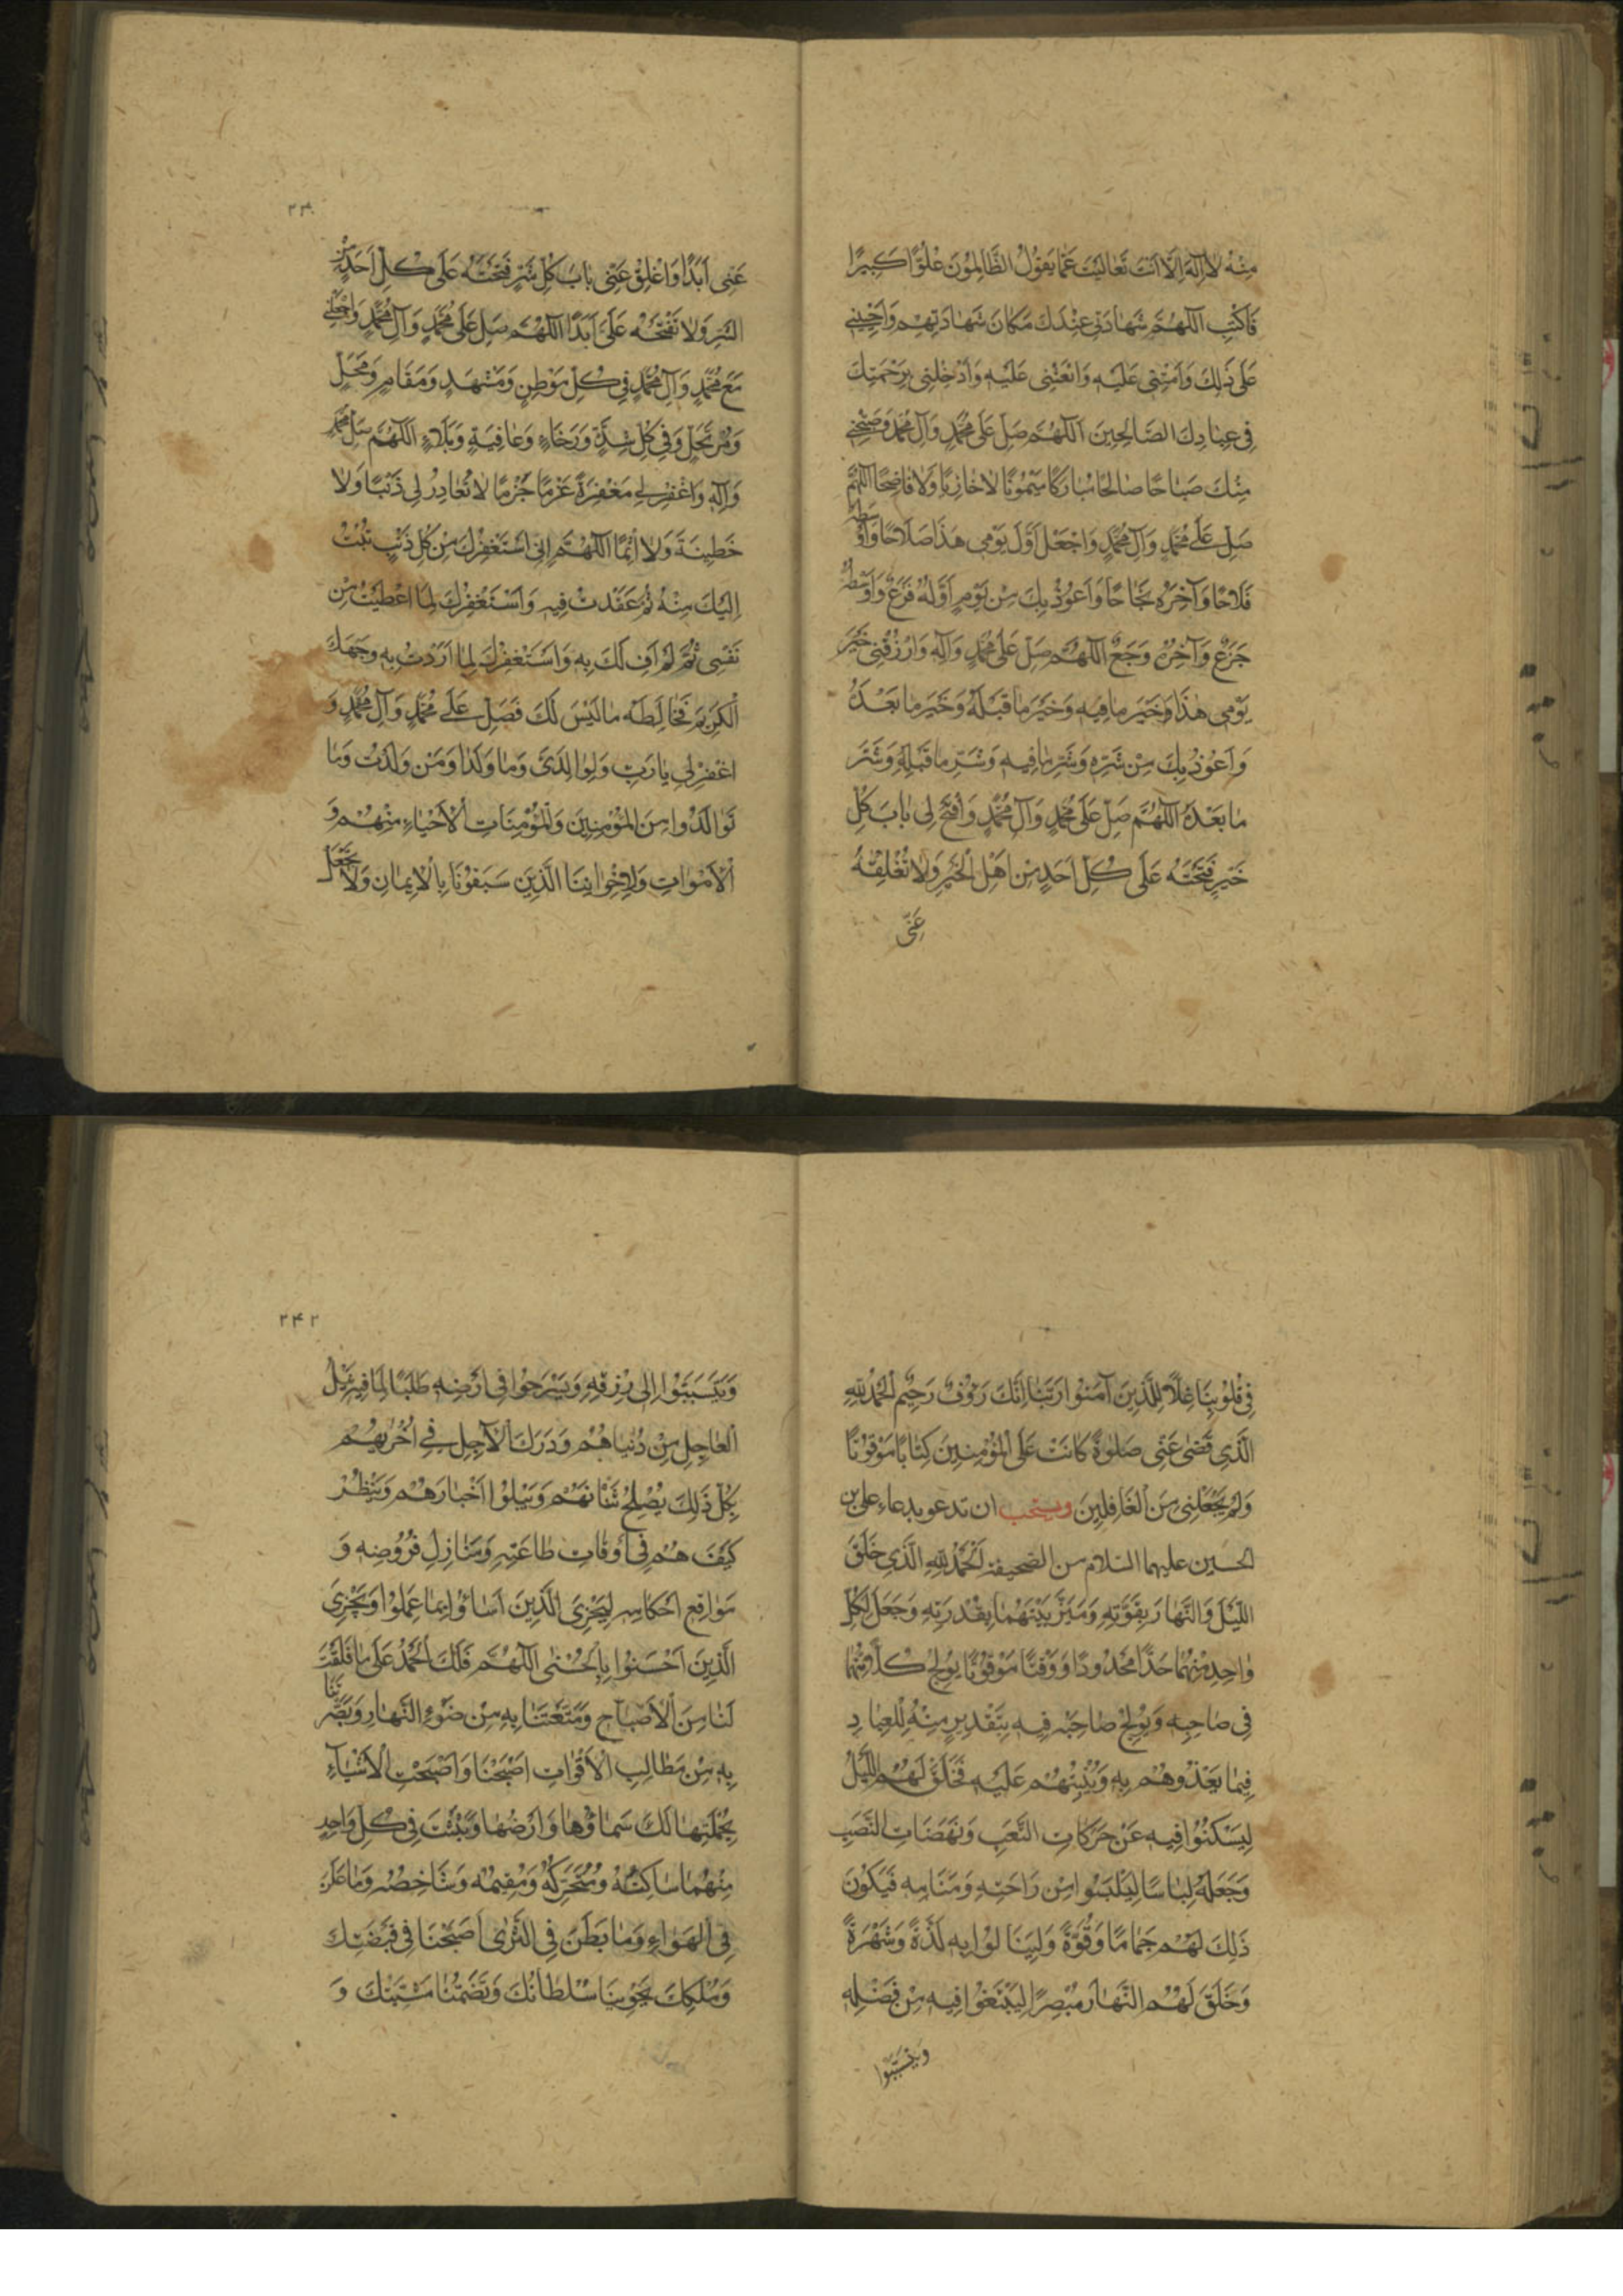 مِنْهُ لَا اِلٰهَ اِلَّا اَنْتَ تَعَالَيْتَ عَمَّا يَقُولُ الظَّالِمُونَ عُلُوًّا كَبِيرًا
فَاكْتُبِ اللّٰهُمَّ شَهَادَتِي عِنْدَكَ مَكَانَ شَهَادَتِهِمْ وَاَحْيِنِي
عَلٰى ذٰلِكَ وَاَمِتْنِي عَلَيْهِ وَابْعَثْنِي عَلَيْهِ وَاَدْخِلْنِي بِرَحْمَتِكَ
فِي عِبَادِكَ الصَّالِحِينَ اَللّٰهُمَّ صَلِّ عَلٰى مُحَمَّدٍ وَآلِ مُحَمَّدٍ وَصَبِّحْنِي
مِنْكَ صَبَاحًا صَالِحًا مُبَارَكًا مَيْمُونًا لَا خَازِيًا وَلَا فَاضِحًا اَللّٰهُمَّ
صَلِّ عَلٰى مُحَمَّدٍ وَآلِ مُحَمَّدٍ وَاجْعَلْ اَوَّلَ يَوْمِي هٰذَا صَلَاحًا وَاَوْسَطَهُ
فَلَاحًا وَآخِرَهُ نَجَاحًا وَاَعُوذُ بِكَ مِنْ يَوْمٍ اَوَّلُهُ فَزَعٌ وَاَوْسَطُهُ
جَزَعٌ وَآخِرُهُ وَجَعٌ اَللّٰهُمَّ صَلِّ عَلٰى مُحَمَّدٍ وَآلِهِ وَارْزُقْنِي خَيْرَ
يَوْمِي هٰذَا وَخَيْرَ مَا فِيهِ وَخَيْرَ مَا قَبْلَهُ وَخَيْرَ مَا بَعْدَهُ
وَاَعُوذُ بِكَ مِنْ شَرِّهِ وَشَرِّ مَا فِيهِ وَشَرِّ مَا قَبْلَهُ وَشَرِّ
مَا بَعْدَهُ اَللّٰهُمَّ صَلِّ عَلٰى مُحَمَّدٍ وَآلِ مُحَمَّدٍ وَافْتَحْ لِي بَابَ كُلِّ
خَيْرٍ فَتَحْتَهُ عَلٰى كُلِّ اَحَدٍ مِنْ اَهْلِ الْخَيْرِ وَلَا تُغْلِقْهُ
عَنِّي
عَنِّي اَبَدًا وَاَغْلِقْ عَنِّي بَابَ كُلِّ شَرٍّ فَتَحْتَهُ عَلٰى كُلِّ اَحَدٍ مِنْ
الشَّرِّ وَلَا تَفْتَحْهُ عَلَيَّ اَبَدًا اَللّٰهُمَّ صَلِّ عَلٰى مُحَمَّدٍ وَآلِ مُحَمَّدٍ وَاجْعَلْنِي
مَعَ مُحَمَّدٍ وَآلِ مُحَمَّدٍ فِي كُلِّ مَوْطِنٍ وَمَشْهَدٍ وَمَقَامٍ وَمَحَلٍّ
وَمُرْتَحَلٍ وَفِي كُلِّ شِدَّةٍ وَرَخَاءٍ وَعَافِيَةٍ وَبَلَاءٍ اَللّٰهُمَّ صَلِّ مُحَمَّدٍ
وَآلِهِ وَاغْفِرْ لِي مَغْفِرَةً عَزْمًا جَزْمًا لَا تُغَادِرُ لِي ذَنْبًا وَلَا
خَطِيئَةً وَلَا اِثْمًا اَللّٰهُمَّ اِنِّي اَسْتَغْفِرُكَ مِنْ كُلِّ ذَنْبٍ تُبْتُ
اِلَيْكَ مِنْهُ ثُمَّ عَقَدْتُ فِيهِ وَاَسْتَغْفِرُكَ لِمَا اَعْطَيْتُ مِنْ
نَفْسِي ثُمَّ لَمْ اَفِ لَكَ بِهِ وَاَسْتَغْفِرُكَ لِمَا اَرَدْتُ بِهِ وَجْهَكَ
الْكَرِيمَ فَخَالَطَهُ مَا لَيْسَ لَكَ فَصَلِّ عَلٰى مُحَمَّدٍ وَآلِ مُحَمَّدٍ وَ
اغْفِرْ لِي يَا رَبِّ وَلِوَالِدَيَّ وَمَا وَلَدَا وَمَنْ وَلَدْتُ وَمَا
تَوَالَدُوا مِنَ الْمُؤْمِنِينَ وَالْمُؤْمِنَاتِ الْاَحْيَاءِ مِنْهُمْ وَ
الْاَمْوَاتِ وَلِاِخْوَانِنَا الَّذِينَ سَبَقُونَا بِالْاِيمَانِ وَلَا تَجْعَلْ
فِي قُلُوبِنَا غِلًّا لِلَّذِينَ آمَنُوا رَبَّنَا اِنَّكَ رَؤُفٌ رَحِيمٌ اَلْحَمْدُ لِلّٰهِ
الَّذِي قَضٰى عَنِّي صَلٰوةً كَانَتْ عَلَى الْمُؤْمِنِينَ كِتَابًا مَوْقُوتًا
وَلَمْ يَجْعَلْنِي مِنَ الْغَافِلِينَ ويستحب ان تدعو بدعاء على بن
الحسين عليهما السلام من الصحيفة اَلْحَمْدُ لِلّٰهِ الَّذِي خَلَقَ
اللَّيْلَ وَالنَّهَارَ بِقُوَّتِهِ وَمَيَّزَ بَيْنَهُمَا بِقُدْرَتِهِ وَجَعَلَ لِكُلِّ
وَاحِدٍ مِنْهُمَا حَدًّا مَحْدُودًا وَوَقْتًا مَوْقُوتًا يُولِجُ كُلًّا مِنْهُمَا
فِي صَاحِبِهِ وَيُولِجُ صَاحِبَهُ فِيهِ بِتَقْدِيرٍ مِنْهُ لِلْعِبَادِ
فِيمَا يَغْذُوهُمْ بِهِ وَيُنْبِتُهُمْ عَلَيْهِ فَخَلَقَ لَهُمُ اللَّيْلَ
لِيَسْكُنُوا فِيهِ عَنْ حَرَكَاتِ التَّعَبِ وَنَهَضَاتِ النَّصَبِ
وَجَعَلَهُ لِبَاسًا لِيَلْبَسُوا مِنْ رَاحَتِهِ وَمَنَامِهِ فَيَكُونَ
ذٰلِكَ لَهُمْ جَمَامًا وَقُوَّةً وَلِيَنَالُوا بِهِ لَذَّةً وَشَهْوَةً
وَخَلَقَ لَهُمُ النَّهَارَ مُبْصِرًا لِيَبْتَغُوا فِيهِ مِنْ فَضْلِهِ
ويتسببوا
۲۴۲
وَيَتَسَبَّبُوا اِلٰى رِزْقِهِ وَيَسْرَحُوا فِي اَرْضِهِ طَلَبًا لِمَا فِيهِ نَيْلُ
الْعَاجِلِ مِنْ دُنْيَاهُمْ وَدَرَكُ الْآجِلِ فِي اُخْرٰيهُمْ
بِكُلِّ ذٰلِكَ يُصْلِحُ شَانَهُمْ وَيَبْلُوا اَخْبَارَهُمْ وَيَنْظُرُ
كَيْفَ هُمْ فِي اَوْقَاتِ طَاعَتِهِ وَمَنَازِلِ فُرُوضِهِ وَ
مَوَاقِعِ اَحْكَامِهِ لِيَجْزِيَ الَّذِينَ اَسَاؤُا بِمَا عَمِلُوا وَيَجْزِيَ
الَّذِينَ اَحْسَنُوا بِالْحُسْنٰى اَللّٰهُمَّ فَلَكَ الْحَمْدُ عَلٰى مَا فَلَقْتَ
لَنَا مِنَ الْاَصْبَاحِ وَمَتَّعْتَنَا بِهِ مِنْ ضَوْءِ النَّهَارِ وَبَصَّرْتَنَا
بِهِ مِنْ مَطَالِبِ الْاَقْوَاتِ اَصْبَحْنَا وَاَصْبَحَتِ الْاَشْيَاءُ
بِجُمْلَتِهَا لَكَ سَمَاؤُهَا وَاَرْضُهَا وَبَثَثْتَ فِي كُلِّ وَاحِدٍ
مِنْهُمَا سَاكِنُهُ وَمُتَحَرِّكُهُ وَمُقِيمُهُ وَشَاخِصُهُ وَمَا عَلَنَ
فِي الْهَوَاءِ وَمَا بَطَنَ فِي الثَّرٰى اَصْبَحْنَا فِي قَبْضَتِكَ
وَمُلْكِكَ يَحْوِينَا سُلْطَانُكَ وَتَضُمُّنَا مَشِيَّتُكَ وَ